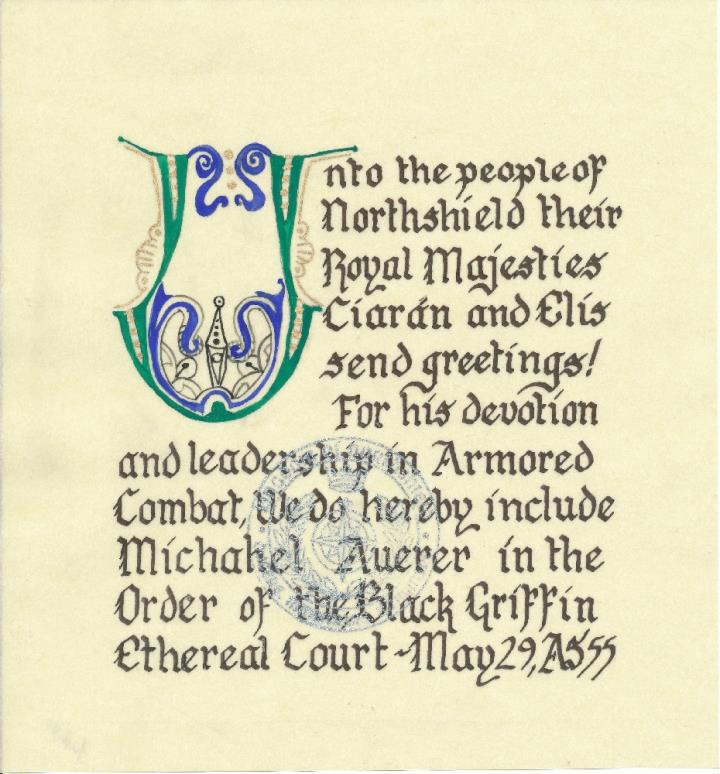 Unto the people of
Northshield their
Royal Majesties
Ciarán and Elis
send greetings!
For his devotion
and leadership in Armored
Combat, We do hereby include
Michahel Auerer in the
Order of the Black Griffin
Ethereal Court ~ May 29, AS55